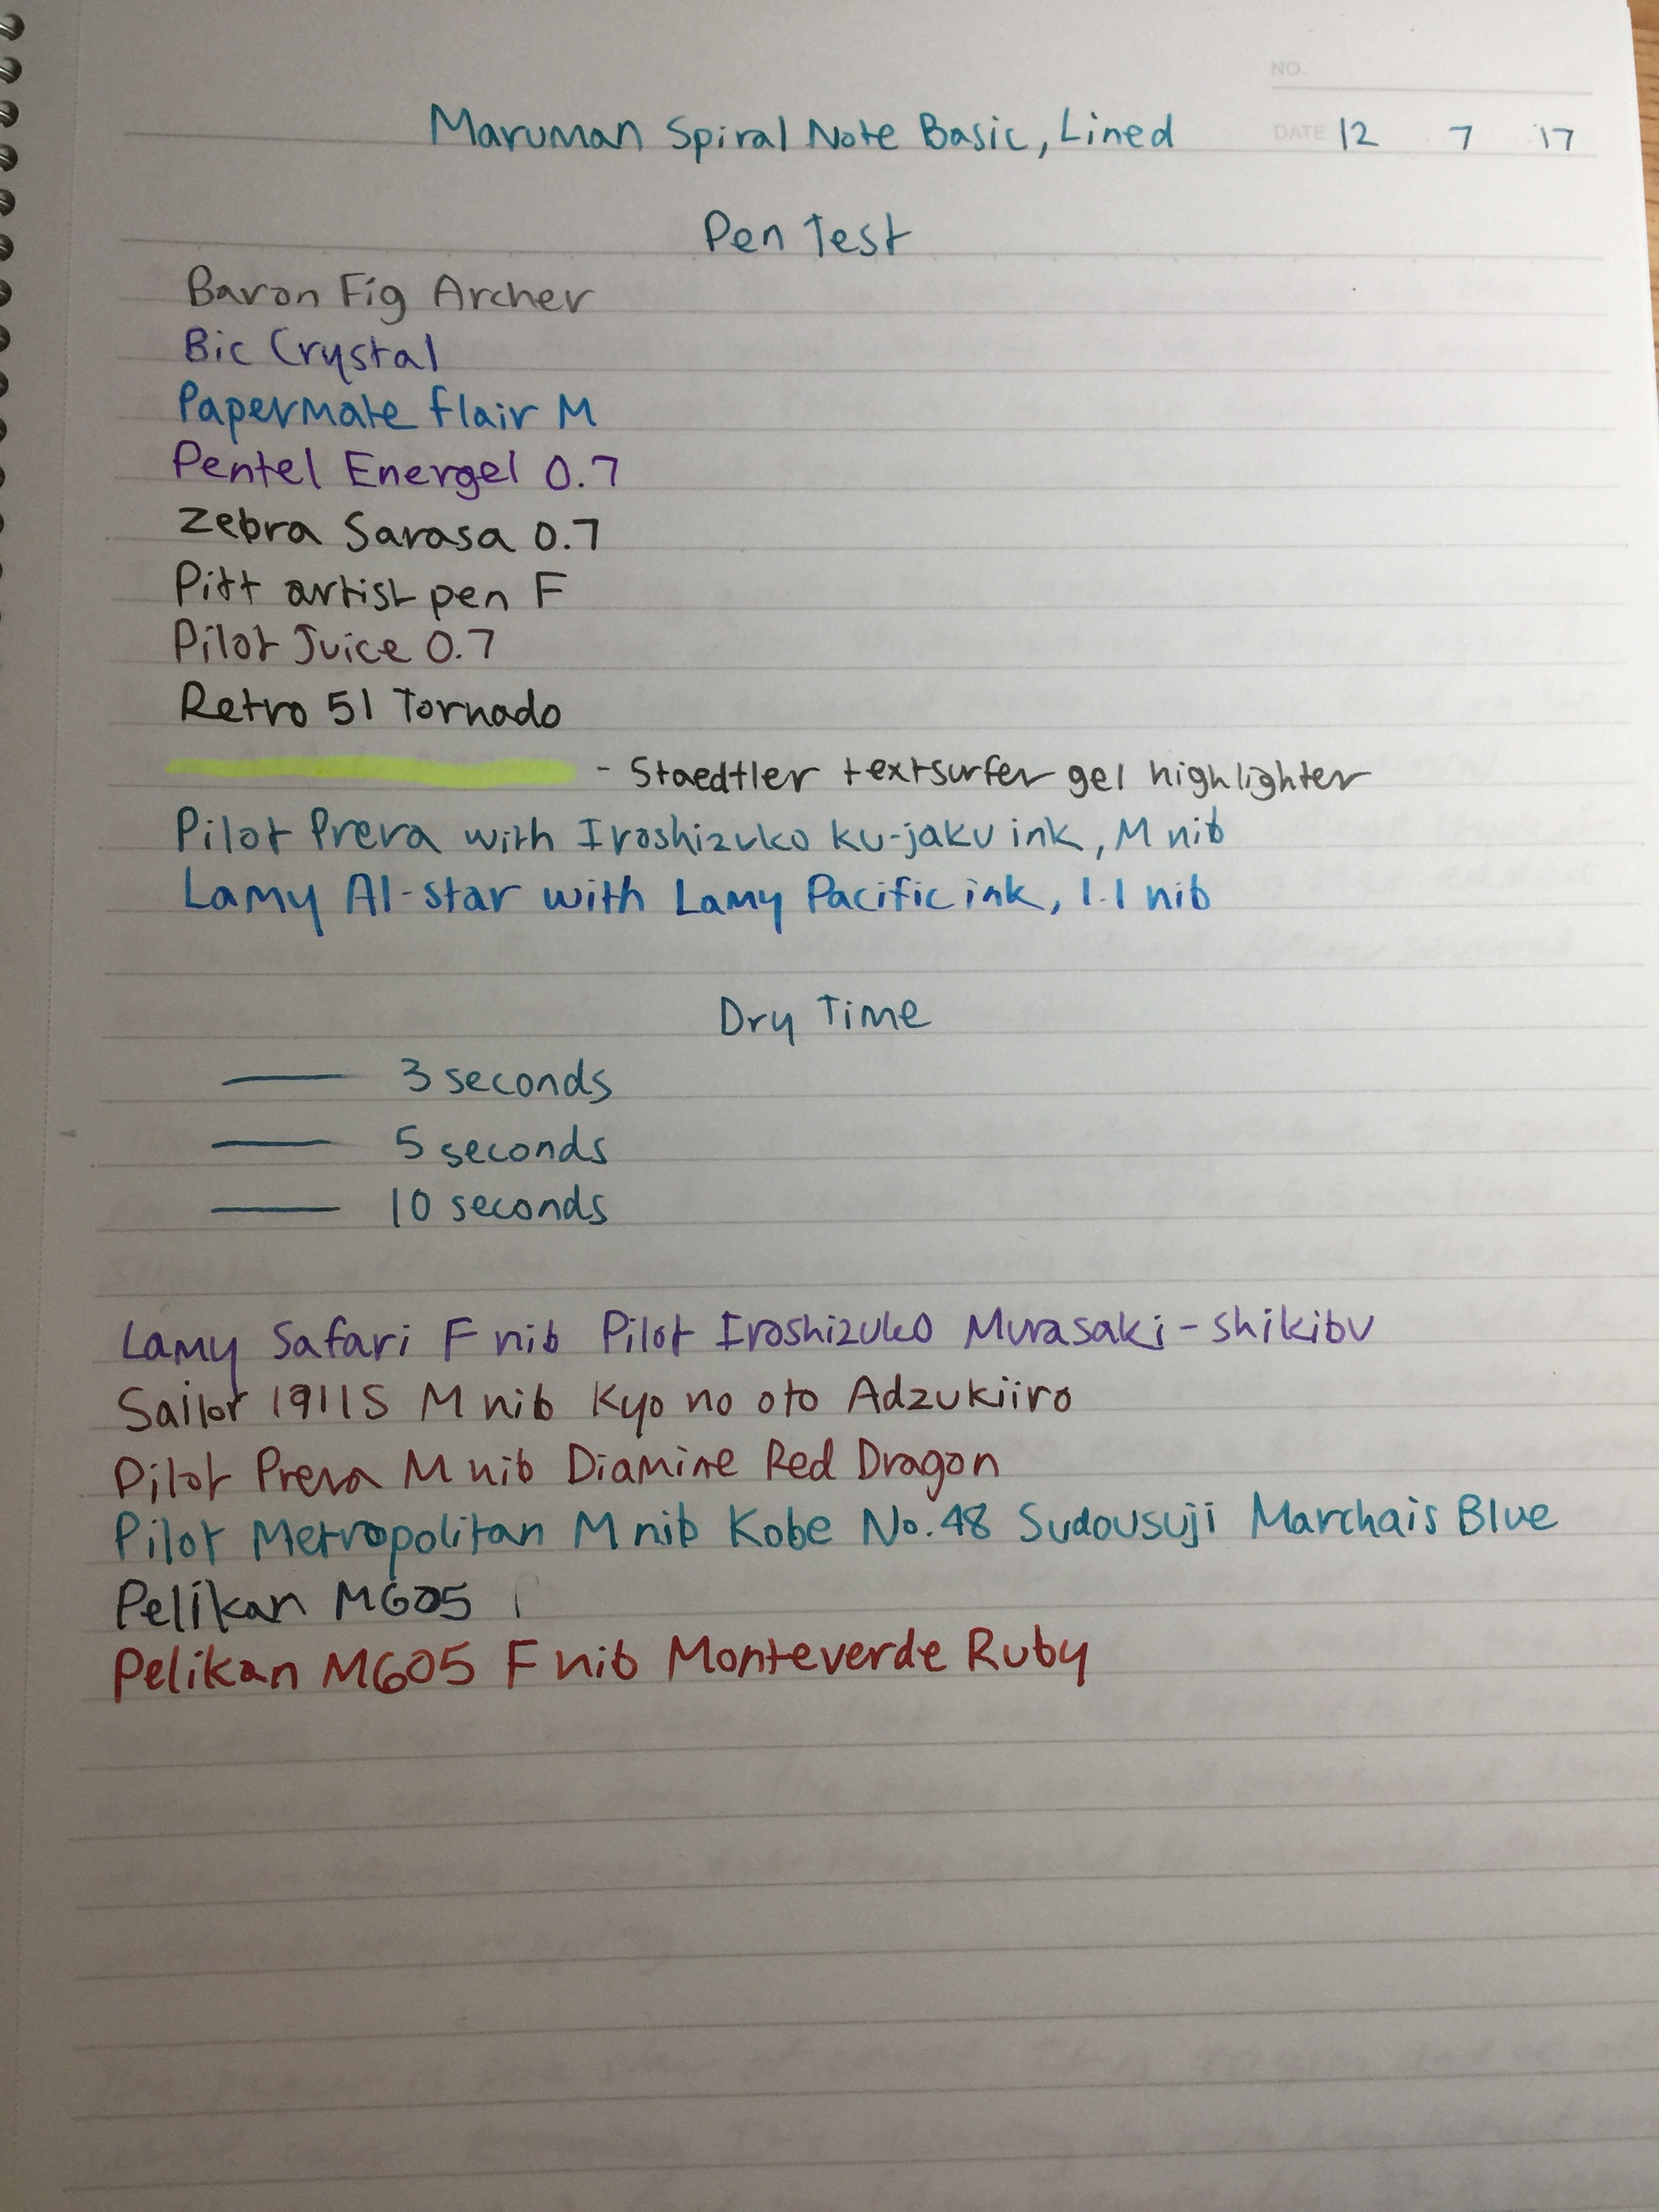 NO.
Maruman Spiral Note Basic, Lined DATE 12 7 17
Pen Test
Baron Fig Archer
Bic Crystal
Papermate flair M
Pentel Energel 0.7
Zebra Sarasa 0.7
Pitt artist pen F
Pilot Juice 0.7
Retro 51 Tornado
- Staedtler textsurfer gel highlighter
Pilot Prera with Iroshizuko ku-jaku ink, M nib
Lamy Al-star with Lamy Pacific ink, 1.1 nib
Dry Time
3 seconds
5 seconds
10 seconds
Lamy Safari F nib Pilot Iroshizuko Murasaki-shikibu
Sailor 1911S M nib Kyo no oto Adzukiiro
Pilot Prera M nib Diamine Red Dragon
Pilot Metropolitan M nib Kobe No.48 Sudousuji Marchais Blue
Pelikan M605
Pelikan M605 F nib Monteverde Ruby